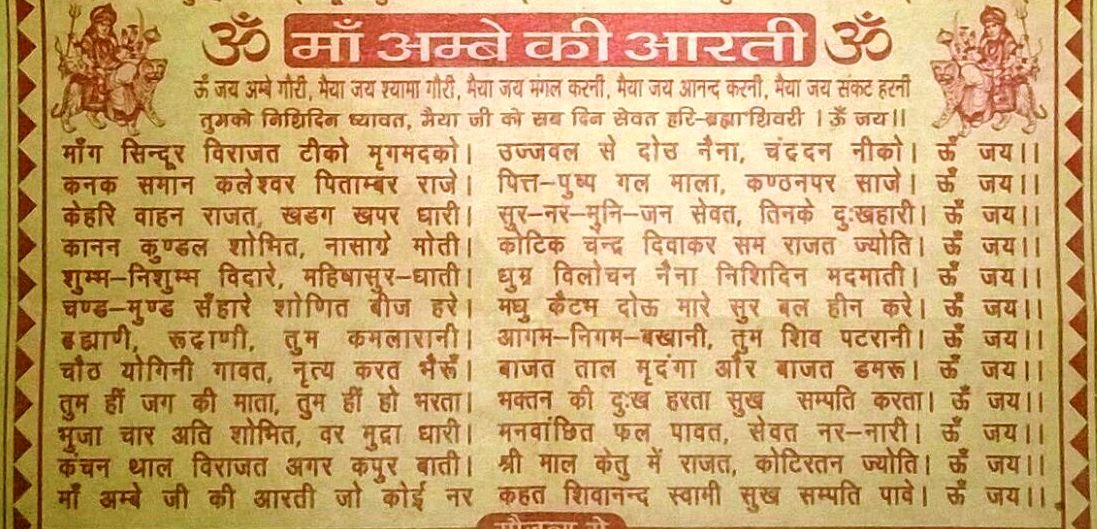 ॐ माँ अम्बे की आरती ॐ
ऊँ जय अम्बे गौरी, मैया जय श्यामा गौरी, मैया जय मंगल करनी, मैया जय आनन्द करनी, मैया जय संकट हरनी
तुमको निशिदिन ध्यावत, मैया जी को सब दिन सेवत हरि-ब्रह्मा शिवरी । ऊँ जय।।
माँग सिन्दूर विराजत टीको मृगमदको। उज्जवल से दोउ नैना, चंद्रदन नीको। ऊँ जय।।
कनक समान कलेश्वर पिताम्बर राजे। पित्त-पुष्प गल माला, कण्ठनपर साजे। ऊँ जय।।
केहरि वाहन राजत, खडग खपर धारी। सुर-नर-मुनि-जन सेवत, तिनके दुःखहारी। ऊँ जय।।
कानन कुण्डल शोभित, नासाग्रे मोती। कोटिक चन्द्र दिवाकर सम राजत ज्योति। ऊँ जय।।
शुम्भ-निशुम्भ विदारे, महिषासुर-धाती। धुम्र विलोचन नैना निशिदिन मदमाती। ऊँ जय।।
चण्ड-मुण्ड सँहारे शोणित बीज हरे। मधु कैटभ दोऊ मारे सुर बल हीन करे। ऊँ जय।।
ब्रह्माणी, रूद्राणी, तुम कमलारानी। आगम-निगम-बखानी, तुम शिव पटरानी। ऊँ जय।।
चौठ योगिनी गावत, नृत्य करत भैरूँ। बाजत ताल मृदंगा और बाजत डमरू। ऊँ जय।।
तुम हीं जग की माता, तुम हीं हो भरता। भक्तन की दुःख हरता सुख सम्पति करता। ऊँ जय।।
भुजा चार अति शोभित, वर मुद्रा धारी। मनवांछित फल पावत, सेवत नर-नारी। ऊँ जय।।
कंचन थाल विराजत अगर कपुर बाती। श्री माल केतु में राजत, कोटिरतन ज्योति। ऊँ जय।।
माँ अम्बे जी की आरती जो कोई नर कहत शिवानन्द स्वामी सुख सम्पति पावे। ऊँ जय।।